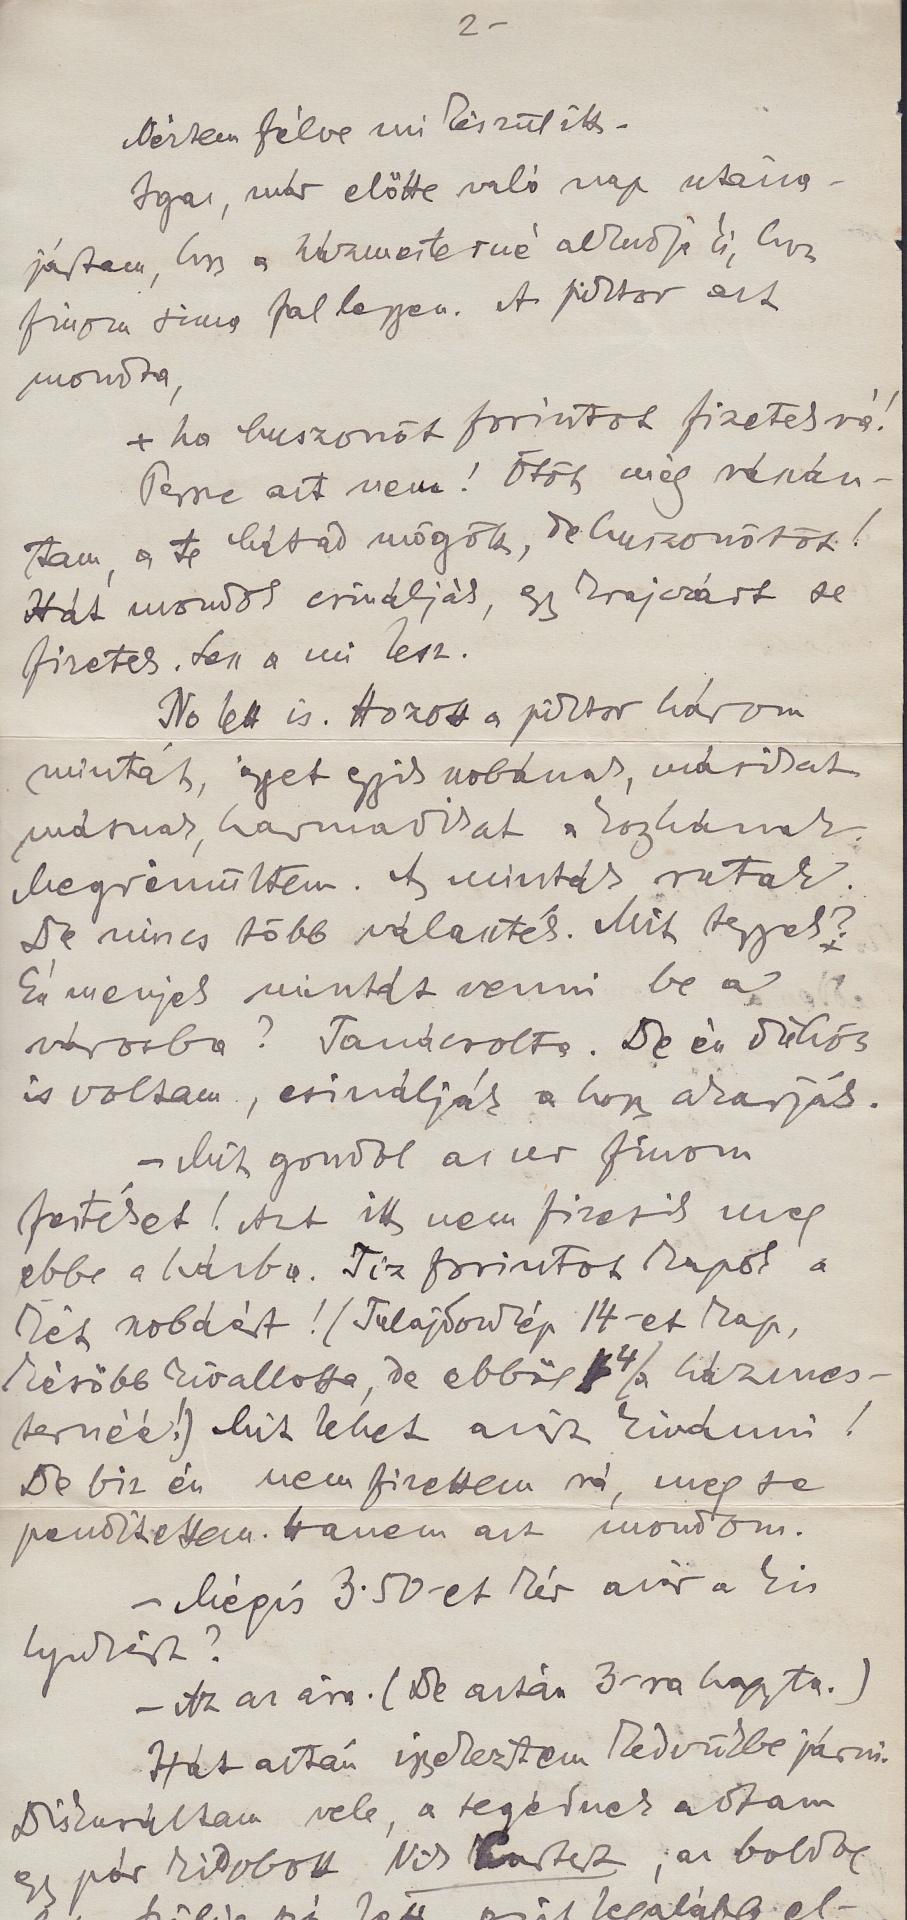 2 –
Néztem félve mi készül itt –
Igaz, már előtte való nap utána-
jártam, hogy a házmesterné alkudja ki, hogy
finom sima fal legyen. A piktor azt
mondta,
+ ha huszonöt forintot fizetek rá!
Persze azt nem! Ötöt még rászán-
tam, a te hátad mögött, de huszonötöt!
Hát mondok csinálják, egy krajczárt se
fizetek. Lesz a mi lesz.
No lett is. Hozott a piktor három
mintát, egyet egyik szobának, másikat
másnak, harmadikat a konyhának.
Megrémültem. A minták rutak.
De nincs több választék. Mit tegyek?
Én menjek mintát venni be a
városba? Tanácsolta. De én dühös
is voltam, csinálják a hogy akarják.
– Mit gondol az ur finom
festéket! Azt itt nem fizetik meg
ebbe a házba. Tiz forintot kapok a
két szobáért! (Tulajdonkép 14-et kap,
később kivallotta, de ebből 4 a házmes-
ternéé!) Mit lehet azért kivánni!
De biz én nem fizettem rá, meg se
penditettem. Hanem azt mondom.
– Mégis 3·50-et kér azért a kis
lyukért?
– Az az ára. (De aztán 3-ra hagyta.)
Hát aztán igyekeztem kedvükbe járni.
Diskuráltam vele, a segédnek adtam
egy pár kidobott Nick Cartert, az boldog
lett, legalább el-